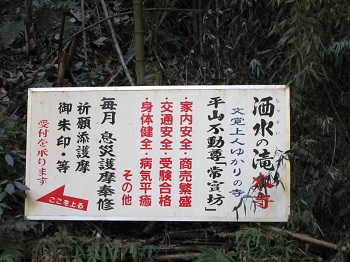 洒水の滝
文覚上人ゆかりの寺
平山不動尊「常実坊」
・家内安全・商売繁盛
・交通安全・受験合格
・身体健全・病気平癒
その他
毎月 息災護摩奉修
祈願添護摩
御朱印・等
受付を承ります
ここを上る